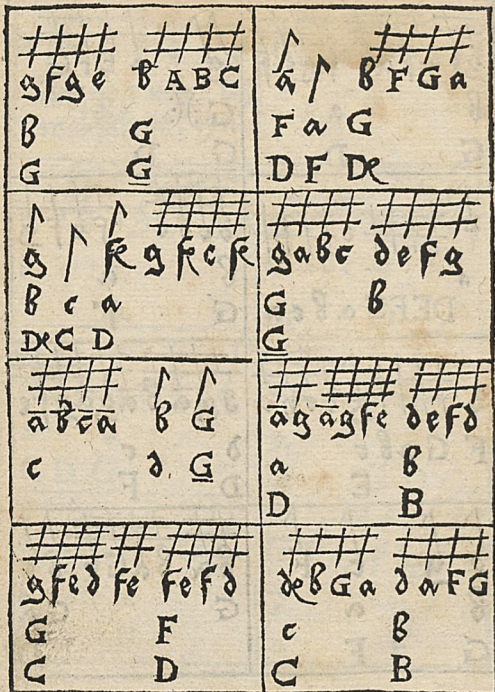 g f g e b A B C
b G
G G
a b F G a
F a G
D F D
g f g f c f
b c a
D C D
g a b c d e f g
G b
G
a b c a b G
c d G
a g a g f e d e f d
a b
D B
g f e d f e f e f d
G F
C D
d b G a d a F G
c b
C B